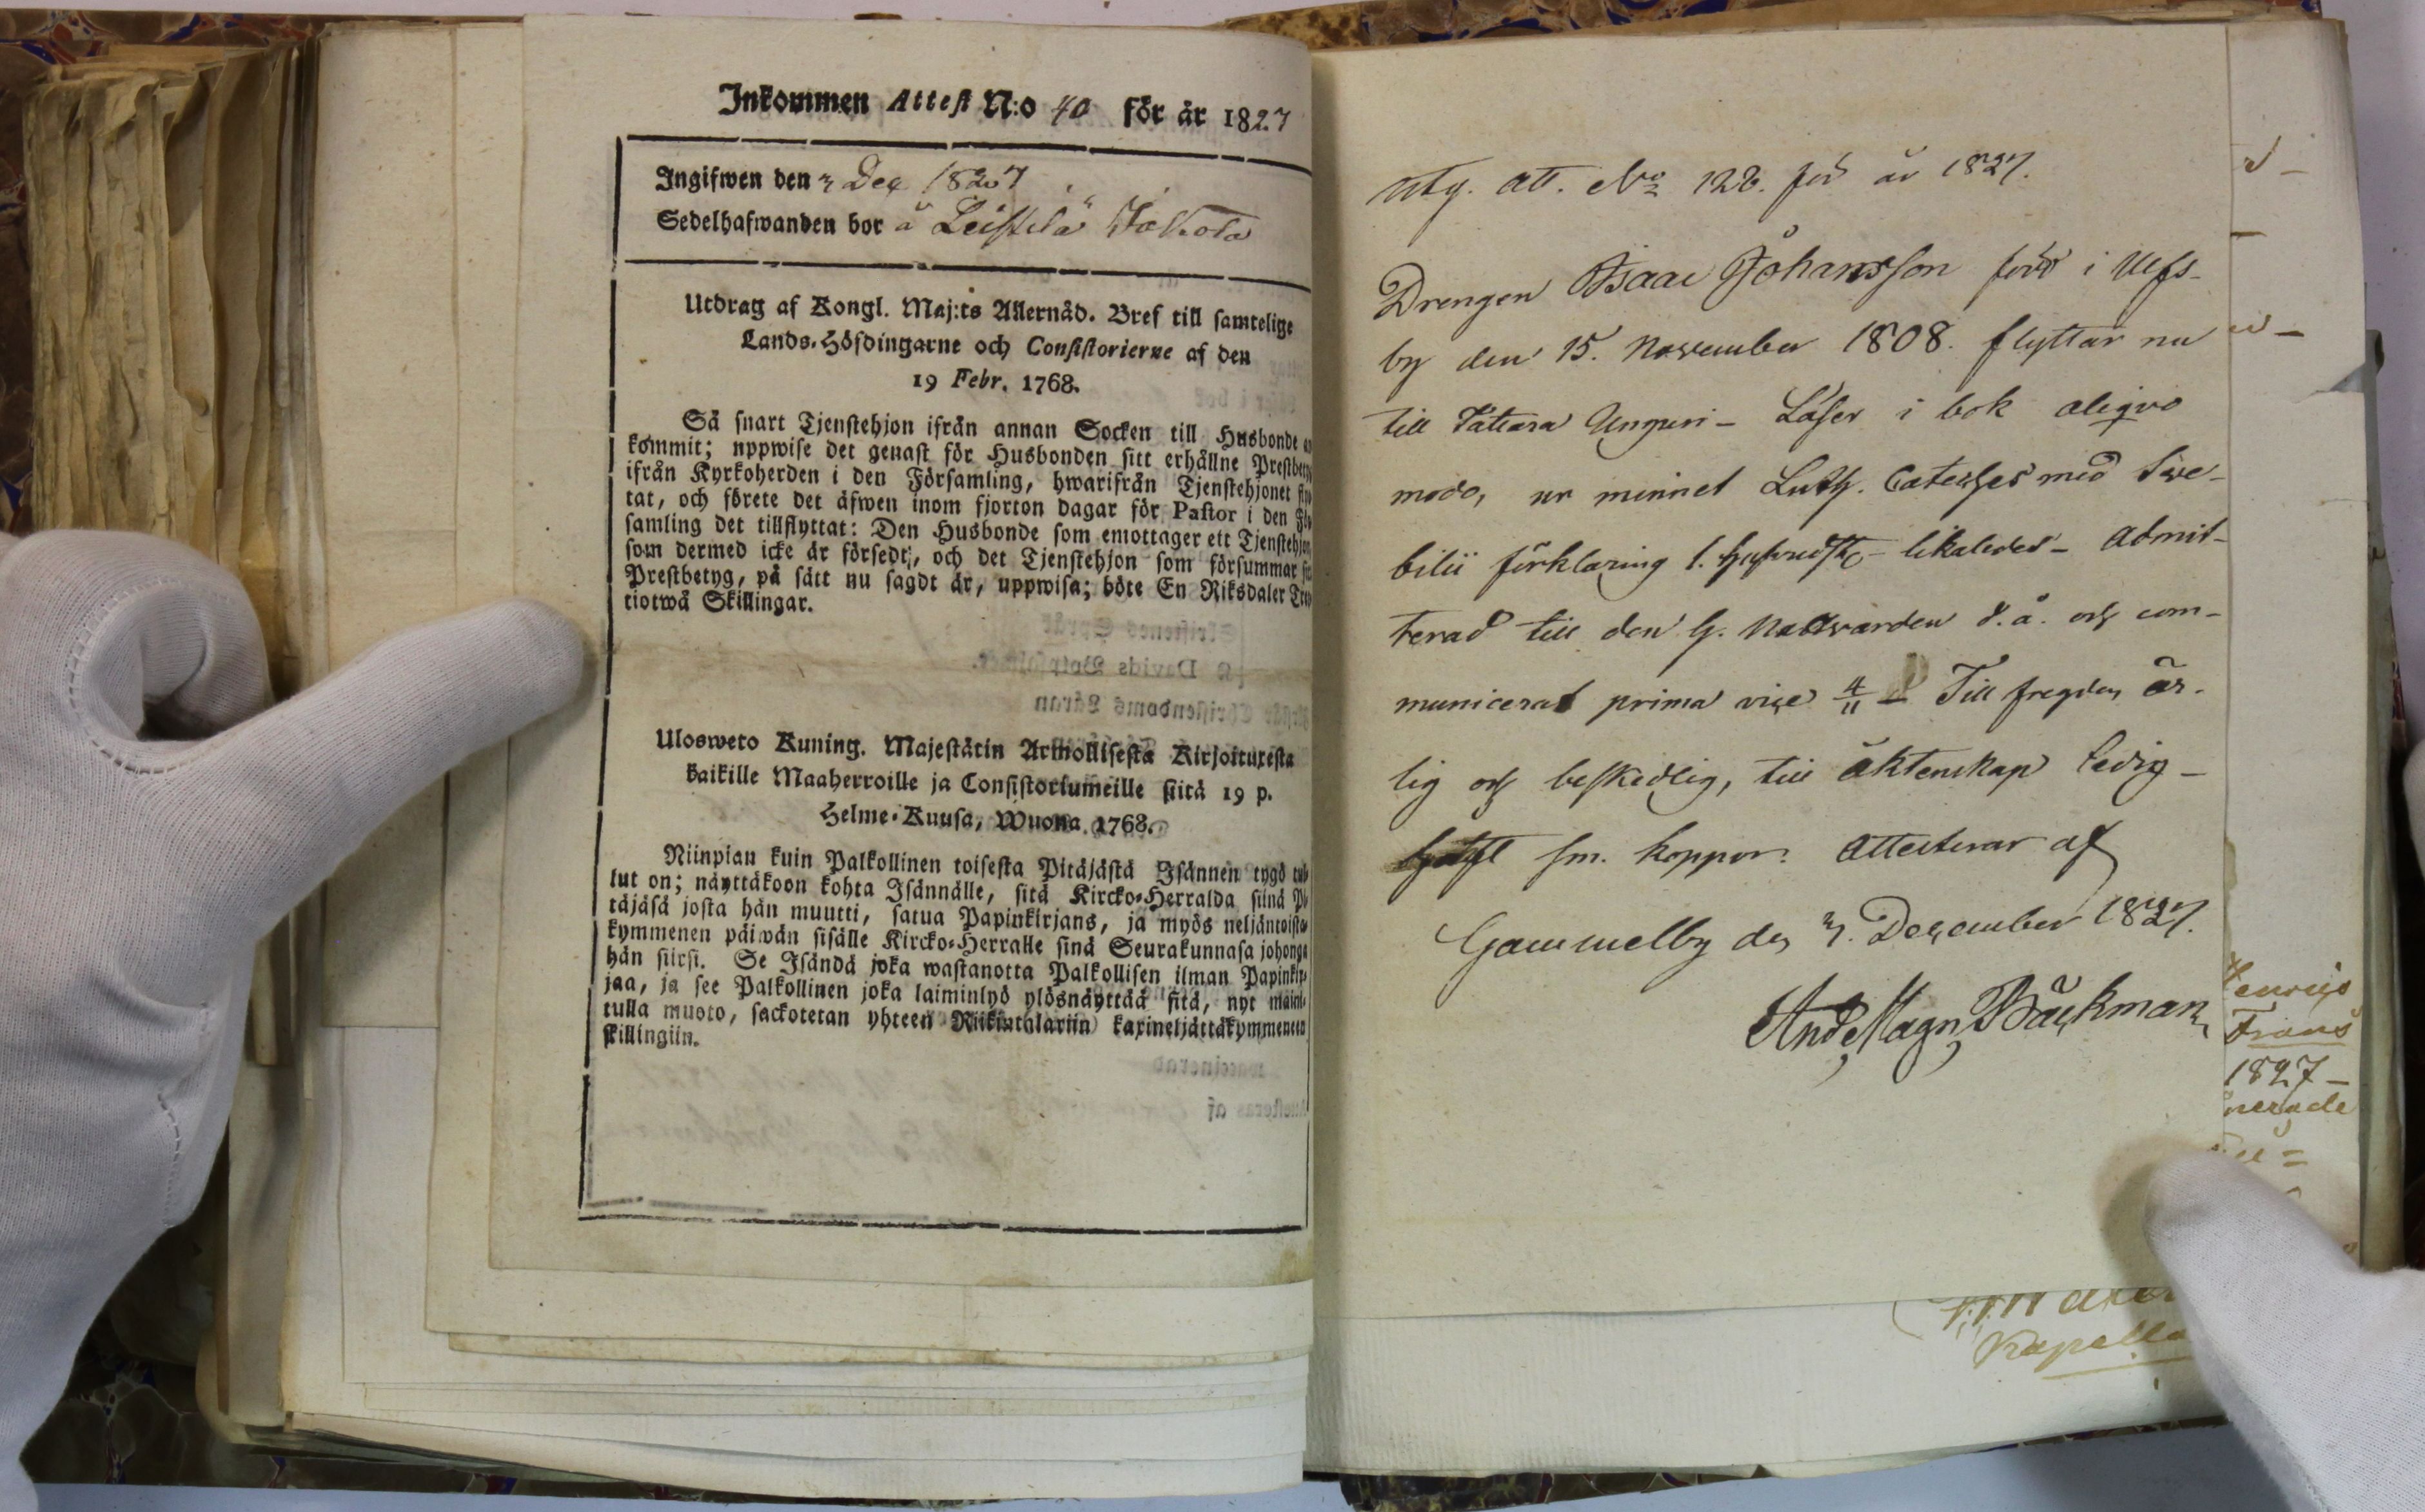 Inkommen Attest N:o 40 för år 1827
Ingifwen den 3 Dec 1827
Sedelhafwanden bor å Leistilä Jakola
Utdrag af Kongl. Maj:ts Allernåd. Bref till samtelige
Lands-Höfdingarne och Consistorierne af den
19 Febr. 1768.
Så snart Tjenstehjon ifrån annan Socken till Husbonde
kommit; uppwise det genast för Husbonden sitt erhållne
ifrån Kyrkoherden i den Församling, hwarifrån Tjenstehjonet
tat, och förete det äfwen inom fjorton dagar för Pastor i den
samling det tillflyttat: Den Husbonde som emottager ett
som dermed icke är försedt, och det Tjenstehjon som försummar
Prestbetyg, på sätt nu sagdt är, uppwisa; böte En Riksdaler
tiotwå Skillingar.
Ulosweto Kuning. Majestätin Armollisesta Kirjoituxesta
kaikille Maaherroille ja Consistoriumeille siitä 19 p.
Helme-Kuusa, Wuonna 1768.
Niinpian kuin Palkollinen toisesta Pitäjästä Isännen tygö
lut on; näyttäkoon kohta Isännälle, sitä Kircko-Herralda siinä
täjäsä josta hän muutti, satua Papinkirjans, ja myös neljäntoista-
kymmenen päiwän sisälle Kircko-Herralle sinä Seurakunnasa johonga
hän siirsi. Se Isändä joka wastanotta Palkollisen ilman Papinkir-
jaa, ja see Palkollinen joka laiminlyö ylösnäyttää sitä, nyt maini-
tulla muoto, sackotetan yhteen Riikintalariin kaxineljättäkymmeneen
skillingiin.
Utg. att. No 128. för år 1827.
Drengen Isaac Johansson född i Ulfs-
by den 15. November 1808. flyttar nu
till Tattara Unguri - Läser i bok aliqvo
modo, ur minnet Luth. Cateches med Swe-
bilii förklaring likaledes - admit-
terad till den H. Nattvarden d. å. och com-
municerat prima vice 4/11 - Till fregden är-
lig och beskedlig, till äktenskap ledig -
haft sm. koppor. Attesterar af
Gammelby den 3. December 1827.
And Magn Bäckman
Henric
Frans
1827 -
nerade
Kapella